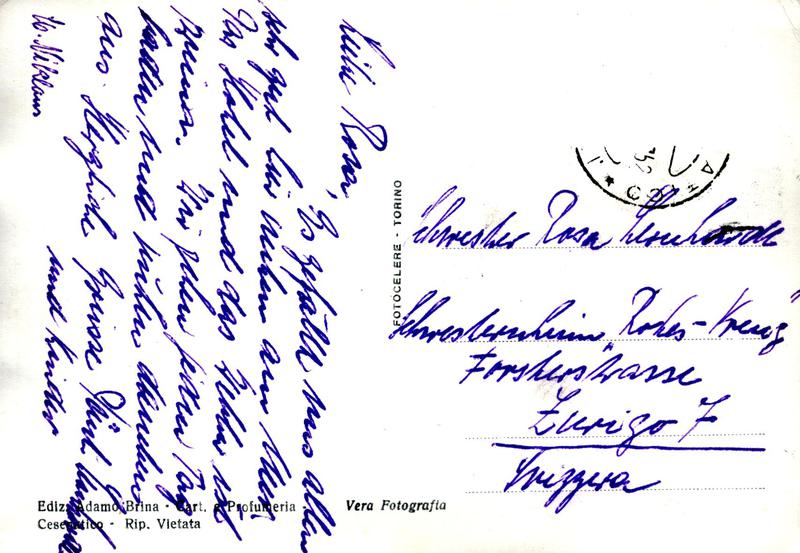 Liebe Rosa,
Es gefällt uns allen
sehr gut hier unten am Meer.
Das Hotel und das Essen ist
prima. Wir gehen jeden Tag
baden und ruhen daneben
aus. Herzliche Grüsse
und Kinder
St. Niklaus
FOTOCELERE - TORINO
Schwester Rosa Leonhardt
Schwesternheim "Rotes-Kreuz"
Forsterstrasse
Zurigo 7
Svizzera
Ediz. Adamo Brina - Cart. e Profumeria -
Cesenatico - Rip. Vietata
Vera Fotografia